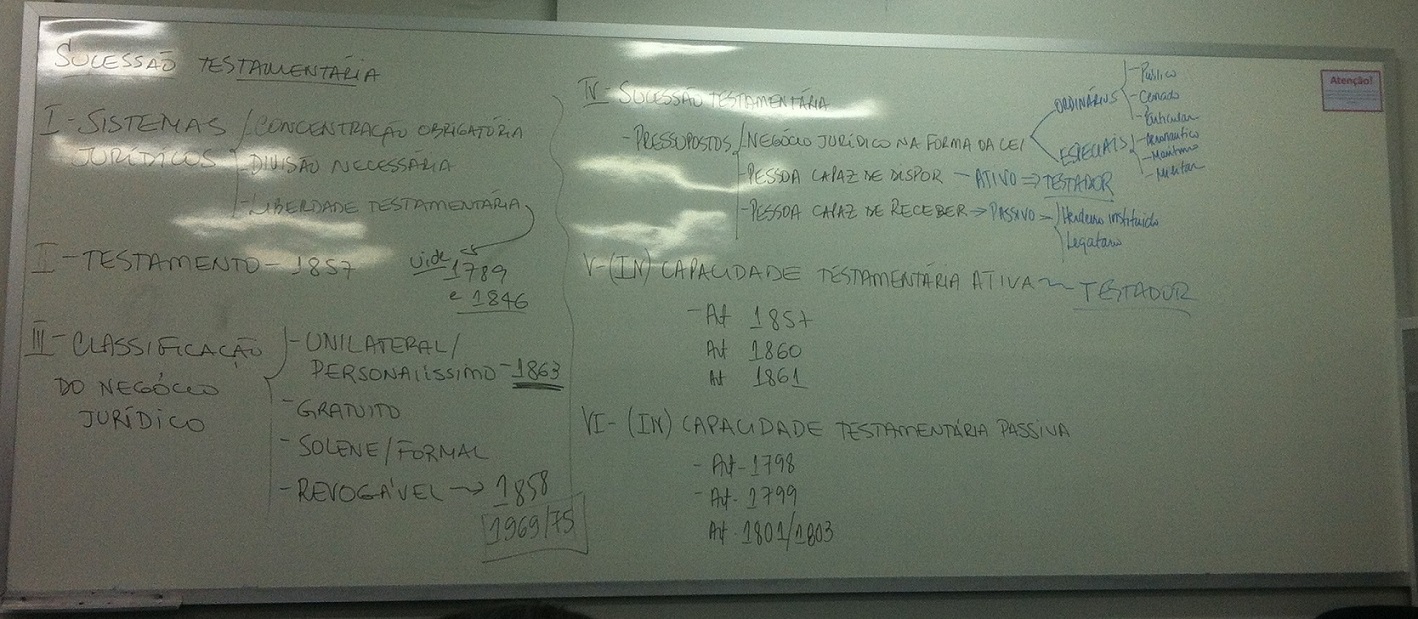 SUCESSÃO TESTAMENTÁRIA
I - SISTEMAS JURÍDICOS
CONCENTRAÇÃO OBRIGATÓRIA
- DIVISÃO NECESSÁRIA
- LIBERDADE TESTAMENTÁRIA
vide 1789
e 1846
I - TESTAMENTO - 1857
III - CLASSIFICAÇÃO
DO NEGÓCIO
JURÍDICO
- UNILATERAL/
PERSONALÍSSIMO - 1863
- GRATUITO
- SOLENE/FORMAL
- REVOGÁVEL → 1858
1969/75
IV - SUCESSÃO TESTAMENTÁRIA
- PRESSUPOSTOS
NEGÓCIO JURÍDICO NA FORMA DA LEI
ORDINÁRIOS
- Público
- Cerrado
- Particular
ESPECIAIS
- Aeronautico
- Maritimo
- Militar
- PESSOA CAPAZ DE DISPOR - ATIVO ⇒ TESTADOR
- PESSOA CAPAZ DE RECEBER → PASSIVO
Herdeiro instituido
Legatario
V - (IN) CAPACIDADE TESTAMENTÁRIA ATIVA ~ TESTADOR
- Art 1857
Art 1860
Art 1861
VI - (IN) CAPACIDADE TESTAMENTÁRIA PASSIVA
- Art - 1798
- Art - 1799
Art - 1801/1803
Atenção!